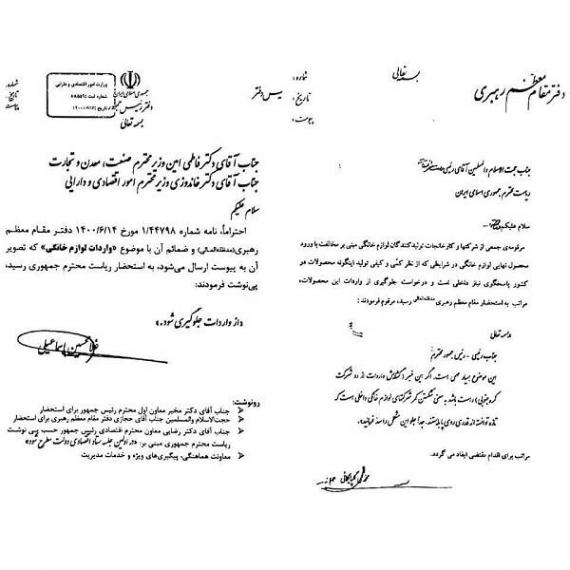 بسمه تعالی
دفتر مقام معظم رهبری
جناب حجت الاسلام والمسلمین آقای رئیسی
ریاست محترم جمهوری اسلامی ایران
سلام علیکم
مرقومه‌ی جمعی از شرکتها و کارخانجات تولیدکنندگان لوازم خانگی مبنی بر مخالفت با ورود
محصول نهایی لوازم خانگی در شرایطی که از نظر کمّی و کیفی تولید اینگونه محصولات در
کشور پاسخگوی نیاز داخلی است و درخواست جلوگیری از واردات این محصولات،
مراتب به استحضار مقام معظم رهبری رسید، مرقوم فرمودند:
بسمه تعالی
جناب رئیسی - رئیس جمهور محترم
این موضوع بسیار مهمی است. اگر این خبر (گشایش واردات از دو شرکت
کره جنوبی) راست باشد به معنی شکستن کمر شرکتهای لوازم خانگی داخلی است که
تازه توانسته‌اند قدری روی پا بایستند. جداً جلو این مشکل را سد فرمائید.
مراتب برای اقدام مقتضی ایفاد می گردد.
شماره:
تاریخ:
پیوست:
جمهوری اسلامی ایران
دفتر رئیس جمهور
بسمه تعالی
رئیس دفتر
وزارت امور اقتصادی و دارایی
جناب آقای دکتر فاطمی امین وزیر محترم صنعت، معدن و تجارت
جناب آقای دکتر خاندوزی وزیر محترم امور اقتصادی و دارایی
سلام علیکم
احتراماً، نامه شماره ۱/۴۴۷۹۸ مورخ ۱۴۰۰/۶/۱۴ دفتر مقام معظم
رهبری (مدظله‌العالی) و ضمائم آن با موضوع «واردات لوازم خانگی» که تصویر
آن به پیوست ارسال می‌شود، به استحضار ریاست محترم جمهوری رسید،
پی‌نوشت فرمودند:
«از واردات جلوگیری شود.»
غلامحسین اسماعیلی
رونوشت:
جناب آقای دکتر مخبر معاون اول محترم رئیس جمهور برای استحضار
حجت‌الاسلام والمسلمین جناب آقای حجازی دفتر مقام معظم رهبری برای استحضار
جناب آقای دکتر رضایی معاون محترم اقتصادی رئیس جمهور حسب پی نوشت
ریاست محترم جمهوری مبنی بر: «در اولین جلسه ستاد اقتصادی دولت مطرح شود»
معاونت هماهنگی، پیگیری‌های ویژه و خدمات مدیریت